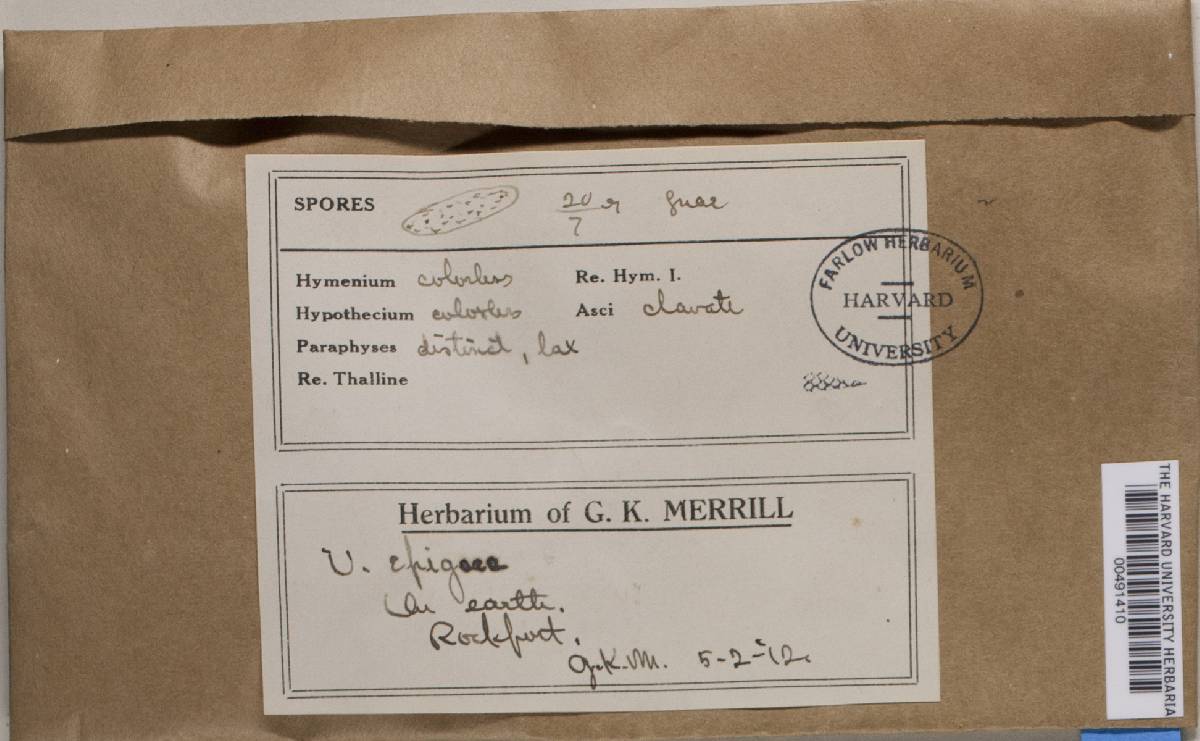 SPORES 20/7
Hymenium colorless Re. Hym. I.
Hypothecium colorless Asci clavate
Paraphyses distinct, lax
Re. Thalline
FARLOW HERBARIUM
HARVARD
UNIVERSITY
Herbarium of G. K. MERRILL
V. epigaea
On earth.
Rockport.
G.K.M. 5-2-12.
THE HARVARD UNIVERSITY HERBARIA
00491410